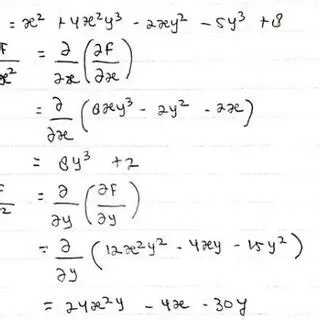 = x² + 4x²y³ - 2xy² - 5y³ + 8
∂F/∂x² = ∂/∂x (∂F/∂x)
= ∂/∂x (8xy³ - 2y² - 2x)
= 8y³ + 2
F/2 = ∂/∂y (∂F/∂y)
= ∂/∂y (12x²y² - 4xy - 15y²)
= 24x²y - 4x - 30y